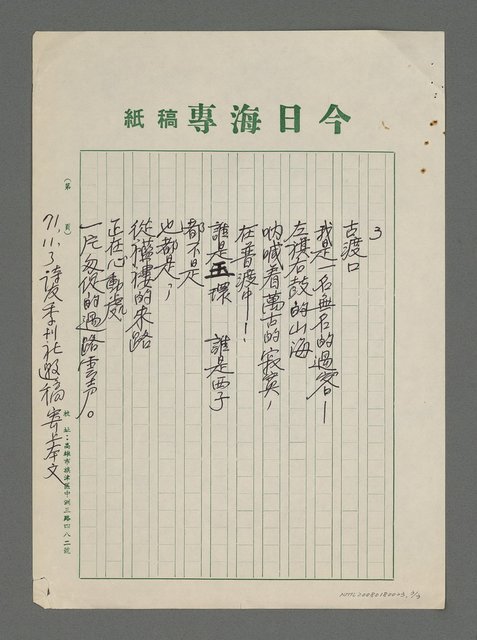 今日海專稿紙
（第　頁）
3
古渡口
我是一名無名的過客—
左旗右鼓的山海
吶喊着萬古的寂寞，
在普渡中—！
誰是玉環　誰是西子
都不是
也都是，，
從樓的來路
正在心動處
一片匆促的過路雲声。
71.11.3 詩季刊社邀稿寄上本文
校址：高雄市旗津區中洲三路四八二號
NMTL20080180043, 3/3